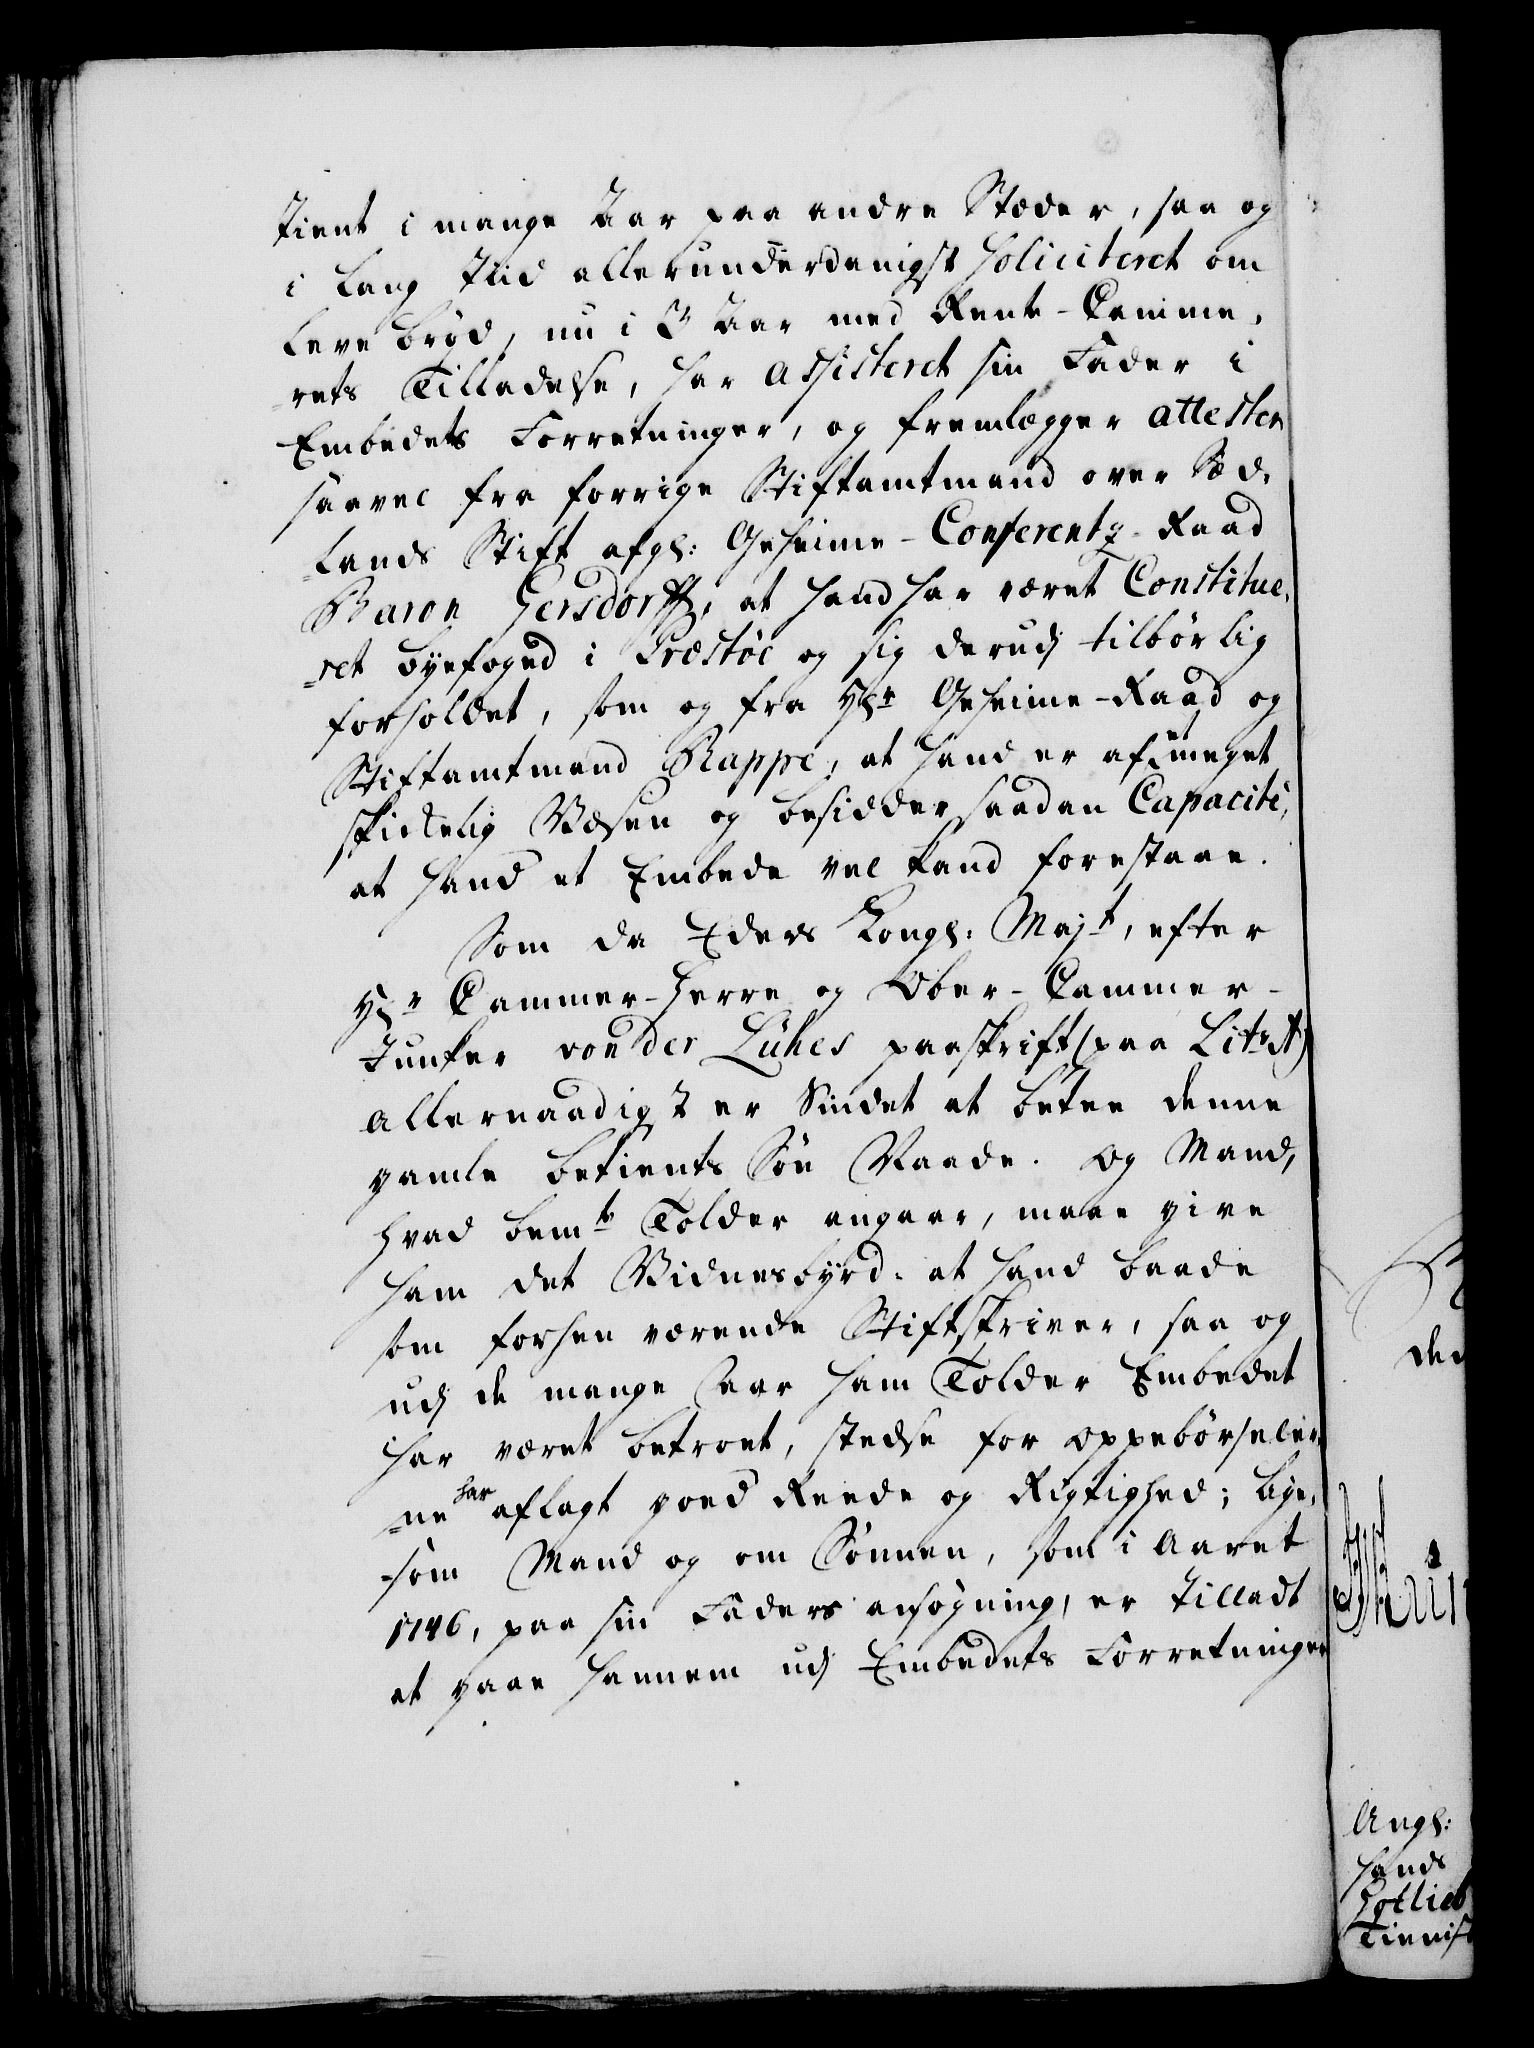 tient i mange Aar paa andre Stæder, saa og
i lang Tiid allerunderdanigst soliciteret om
Levebrød, nu i 3 Aar med Rente-Camme,
-rets Tilladelse, har assisteret sin Fader i
Embedets Forretninger, og fremlegger attester
saavel fra forrige Stiftamtmand over Siæl,
-lands Stift afgl: Geheime-Conferentz-Raad
Baron Gersdorff, at hand har været Constitue,
-ret byefoged i Præstøe og sig derudj tilbørlig
forholdet, som og fra Hr Geheime-Raad og
Stiftamtmand Rappe, at hand er af meget
skickelig Væsen og besidder saadan Capacité,
at hand et Embede vel kand forestaae.
Som da Eders Kongl: Majt, efter
Hr Cammer-Herre og Ober-Cammer-
Junker von der Lühes paaskrift (paa Litr A)
allernaadigst er Sindet at betee denne
gamle betients Søn Naade. Og Mand,
hvad bemte Tolder angaar, maae give
ham det Vidnesbyrd: at hand baade
som forhen værende Stiftskriver, saa og
udj de mange Aar ham Tolder Embedet
har været betroet, stedse for Oppebørseler,
-ne har aflagt goed Reede og Rigtighed; lige,
-som Mand og om Sønnen, som i Aaret
1746, paa sin Faders ansøgning, er tilladt
at gaae hannem udj Embedets Forretninger
den
Angl:
hands
Gotlieb